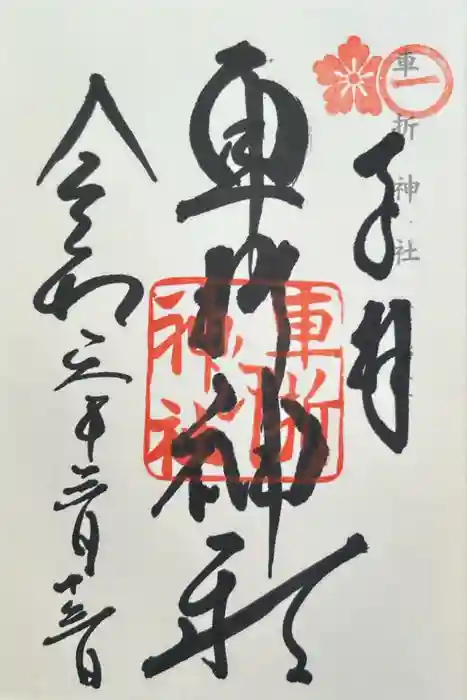 一
車折神社
奉拝
車折神社
車折神社
令和三年三月十三日